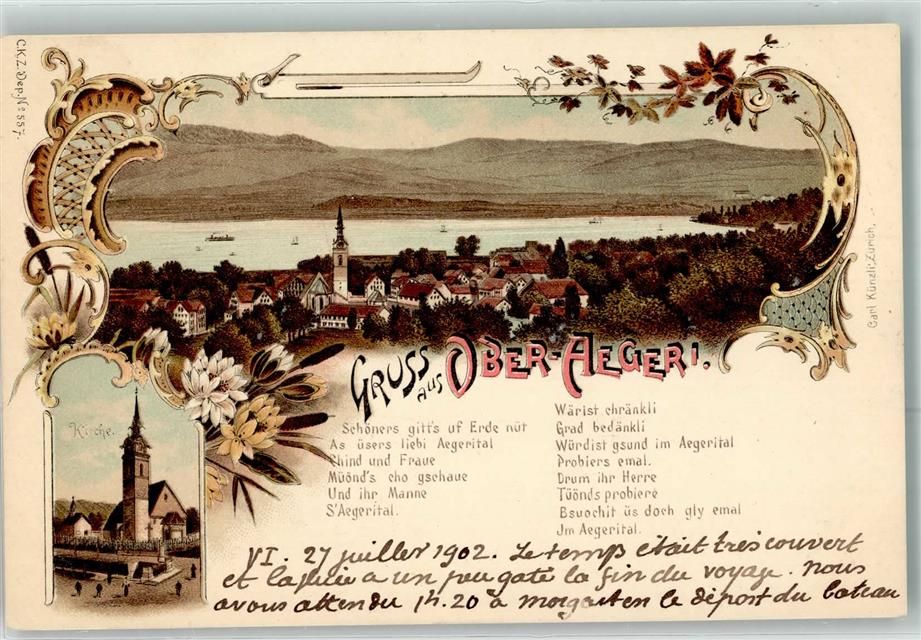 C.K.Z. Dep. No 557.
Carl Künzli, Zürich.
Kirche.
GRUSS aus OBER-AEGERI.
Schöners gitt's uf Erde nüt
As üsers liebi Aegerital
Chind und Fraue
Müönd's cho gschaue
Und ihr Manne
S'Aegerital.
Wärist chränkli
Grad bedänkli
Würdist gsund im Aegerital
Probiers emal.
Drum ihr Herre
Tüönds probiere
Bsuochit üs doch gly emal
Jm Aegerital.
VI. 27 juillet 1902. Le temps était très couvert
et la pluie a un peu gaté la fin du voyage. Nous
avons attendu 1h.20 à morgarten le départ du bateau